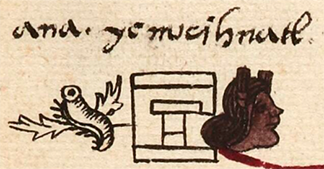 ana. ycnocihuatl